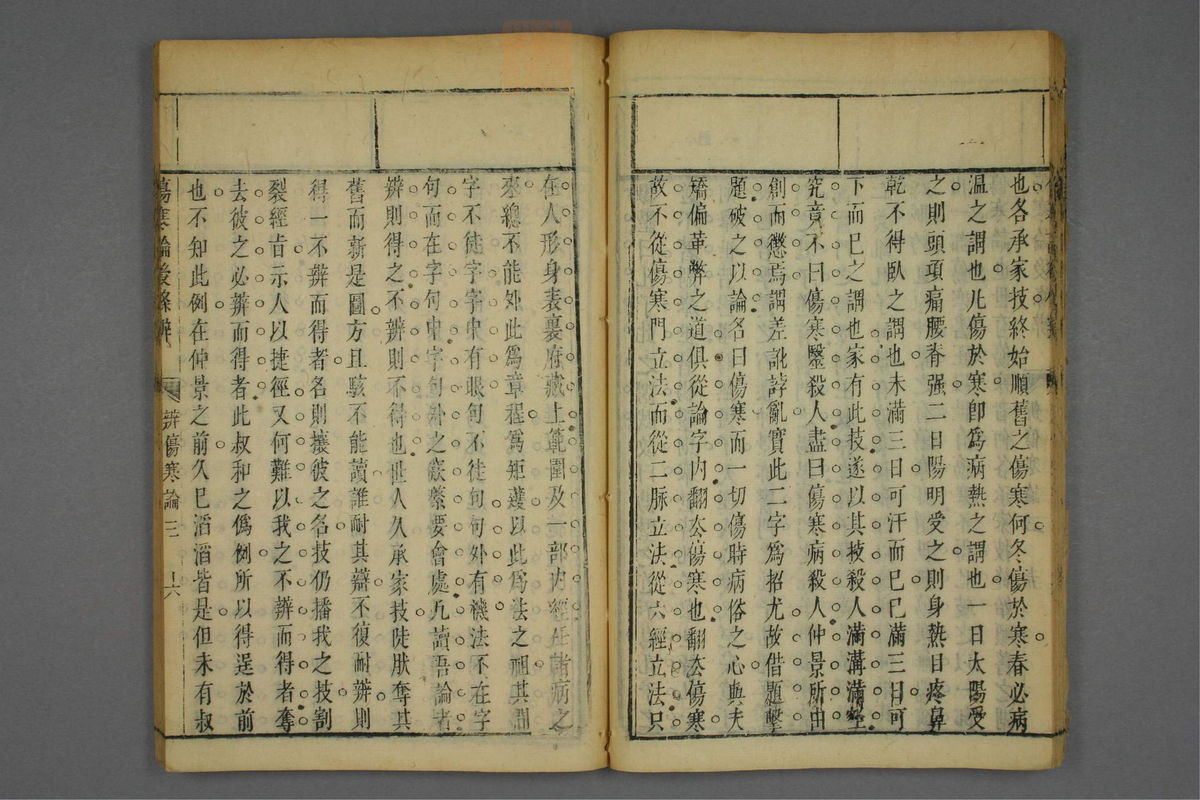 也各承家技終始順舊之傷寒何冬傷於寒春必病
溫之謂也凡傷於寒卽為病熱之謂也一日太陽受
之則頭項痛腰脊强二日陽明受之則身熱目疼鼻
乾不得臥之謂也未滿三日可汗而已已滿三日可
下而已之謂也家有此技遂以其技殺人滿溝滿壑
究竟不曰傷寒毉殺人盡曰傷寒病殺人仲景所由
創而懲焉謂差訛誖亂實此二字爲招尤故借題擊
題破之以論名曰傷寒而一切傷時病俗之心與夫
矯偏革弊之道俱從論字内翻去傷寒也翻去傷寒
故不從傷寒門立法而從二脉立法從六經立法只
在人形身表裏府藏上範圍及一部内經生諸病之
來總不能外此爲章程爲矩矱以此爲法之祖其淵
字不徒字字中有眼句不徒句句外有機法不在字
句而在字句中字句外之窾綮要會處凡讀吾論者
辨則得之不辨則不得也世人久承家技陡肰奪其
舊而新是圖方且駭不能讀誰耐其辯不復耐辨則
得一不辨而得者名則攘彼之名技仍播我之技割
裂經旨示人以捷徑又何難以我之不辨而得者奪
去彼之必辨而得者此叔和之僞例所以得逞於前
也不知此例在仲景之前久已滔滔皆是但未有叔
傷寒論後條辨 辨傷寒論三 十六